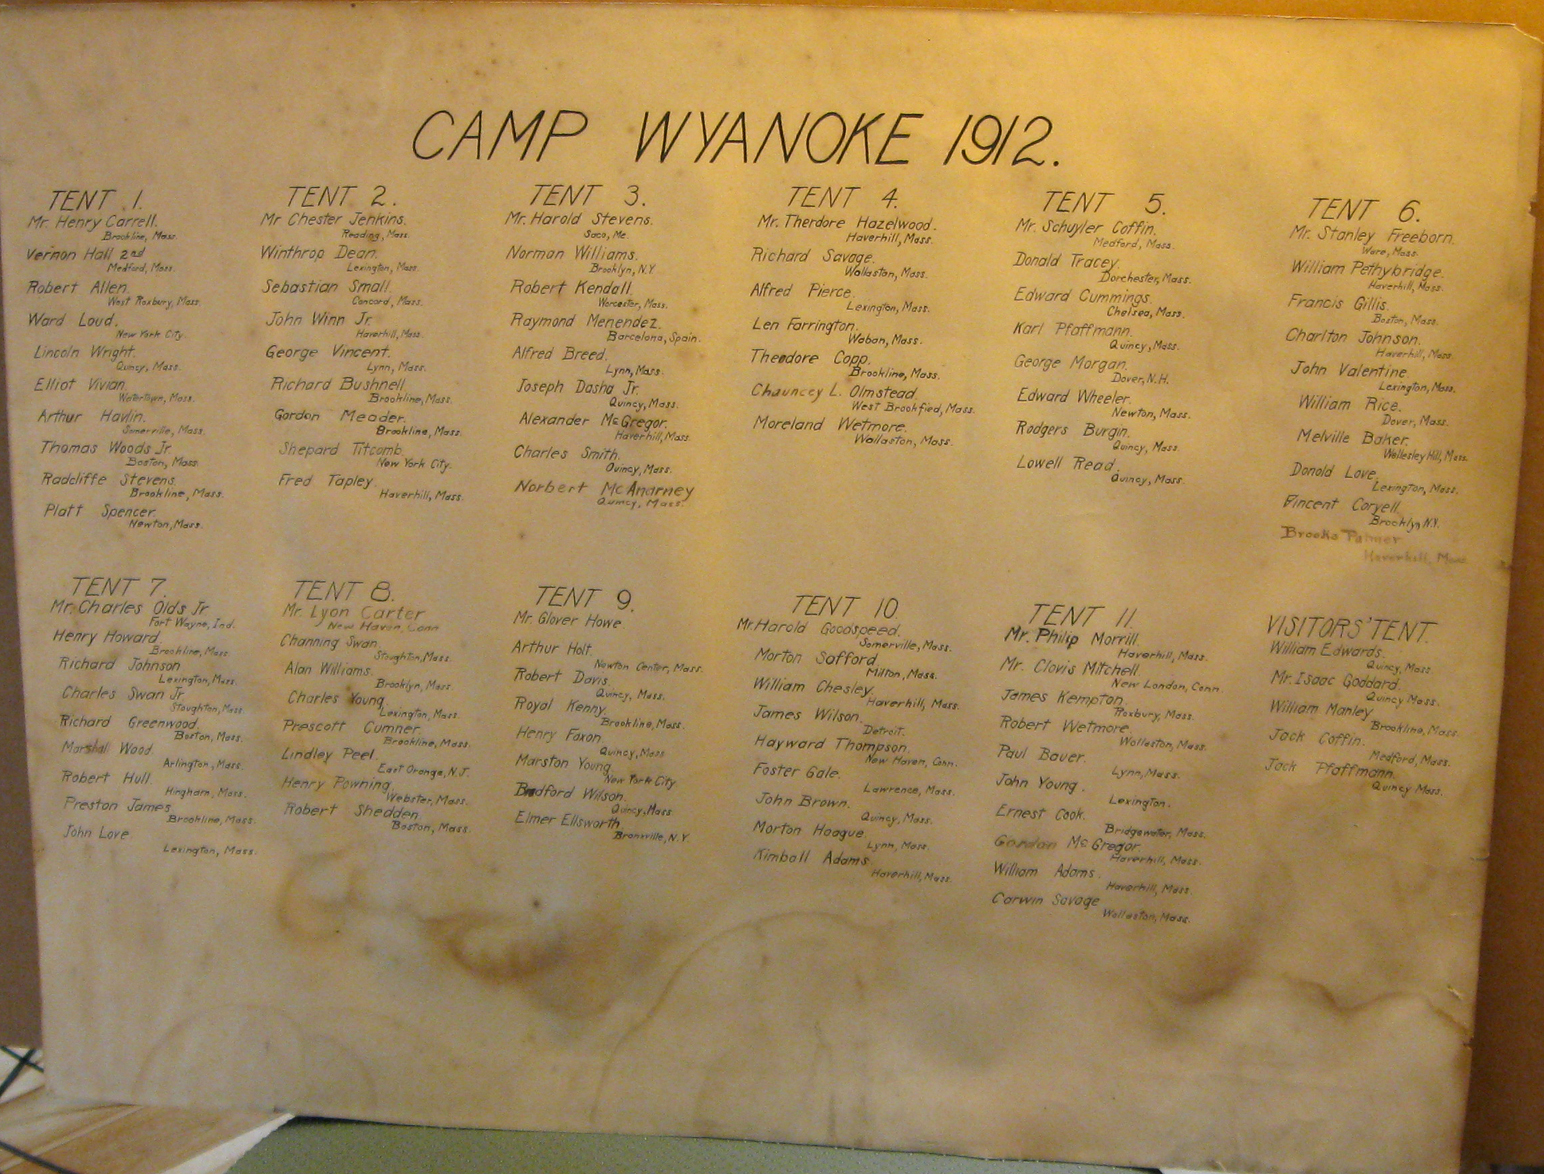 CAMP WYANOKE 1912.
TENT 1.
Mr. Henry Carrell.
Brookline, Mass.
Vernon Hall 2nd
Medford, Mass.
Robert Allen.
West Roxbury, Mass.
Ward Loud.
New York City.
Lincoln Wright.
Quincy, Mass.
Elliot Vivian.
Watertown, Mass.
Arthur Havlin.
Somerville, Mass.
Thomas Woods Jr.
Boston, Mass.
Radcliffe Stevens.
Brookline, Mass.
Platt Spencer.
Newton, Mass.
TENT 2.
Mr Chester Jenkins.
Reading, Mass.
Winthrop Dean.
Lexington, Mass.
Sebastian Small.
Concord, Mass.
John Winn Jr.
Haverhill, Mass.
George Vincent.
Lynn, Mass.
Richard Bushnell.
Brookline, Mass.
Gordon Meader.
Brookline, Mass.
Shepard Titcomb.
New York City.
Fred Tapley.
Haverhill, Mass.
TENT 3.
Mr. Harold Stevens.
Saco, Me.
Norman Williams.
Brooklyn, N.Y.
Robert Kendall.
Worcester, Mass.
Raymond Menendez.
Barcelona, Spain.
Alfred Breed.
Lynn, Mass.
Joseph Dasha Jr.
Quincy, Mass.
Alexander McGregor.
Haverhill, Mass.
Charles Smith.
Quincy, Mass.
Norbert McAnarney
Quincy, Mass.
TENT 4.
Mr. Therdore Hazelwood.
Haverhill, Mass.
Richard Savage.
Wollaston, Mass.
Alfred Pierce.
Lexington, Mass.
Len Farrington.
Waban, Mass.
Theodore Copp.
Brookline, Mass.
Chauncey L. Olmstead.
West Brookfied, Mass.
Moreland Wetmore.
Wollaston, Mass.
TENT 5.
Mr. Schuyler Coffin.
Medford, Mass.
Donald Tracey.
Dorchester, Mass.
Edward Cummings.
Chelsea, Mass.
Karl Pfaffmann.
Quincy, Mass.
George Morgan.
Dover, N.H.
Edward Wheeler.
Newton, Mass.
Rodgers Burgin.
Quincy, Mass.
Lowell Read.
Quincy, Mass.
TENT 6.
Mr. Stanley Freeborn.
Ware, Mass.
William Pethybridge.
Haverhill, Mass.
Francis Gillis.
Boston, Mass.
Charlton Johnson.
Haverhill, Mass.
John Valentine.
Lexington, Mass.
William Rice.
Dover, Mass.
Melville Baker.
Wellesley Hill, Mass.
Donald Love.
Lexington, Mass.
Vincent Coryell.
Brooklyn N.Y.
Brooks Palmer
Haverhill, Mass.
TENT 7.
Mr. Charles Olds Jr
Fort Wayne, Ind.
Henry Howard.
Brookline, Mass.
Richard Johnson
Lexington, Mass.
Charles Swan Jr.
Stoughton, Mass.
Richard Greenwood.
Boston, Mass.
Marshall Wood.
Arlington, Mass.
Robert Hull.
Hingham, Mass.
Preston James.
Brookline, Mass.
John Love
Lexington, Mass.
TENT 8.
Mr. Lyon Carter
New Haven, Conn
Channing Swan.
Stoughton, Mass.
Alan Williams.
Brooklyn, Mass.
Charles Young.
Lexington, Mass.
Prescott Cumner.
Brookline, Mass.
Lindley Peel.
East Orange, N.J.
Henry Powning.
Webster, Mass.
Robert Shedden.
Boston, Mass.
TENT 9.
Mr. Glover Howe
Arthur Holt.
Newton Center, Mass.
Robert Davis.
Quincy, Mass.
Royal Kenny.
Brookline, Mass.
Henry Faxon.
Quincy, Mass
Marston Young.
New York City.
Bradford Wilson.
Quincy, Mass
Elmer Ellsworth.
Bronxville, N.Y.
TENT 10.
Mr. Harold Goodspeed.
Somerville, Mass.
Morton Safford.
Milton, Mass.
William Chesley.
Haverhill, Mass.
James Wilson.
Detroit.
Hayward Thompson.
New Haven, Conn.
Foster Gale.
Lawrence, Mass.
John Brown.
Quincy, Mass.
Morton Hoague.
Lynn, Mass.
Kimball Adams.
Haverhill, Mass.
TENT 11.
Mr. Philip Morrill.
Haverhill, Mass.
Mr. Clovis Mitchell.
New London, Conn
James Kempton
Roxbury, Mass.
Robert Wetmore.
Wollaston, Mass.
Paul Bauer.
Lynn, Mass.
John Young.
Lexington.
Ernest Cook.
Bridgewater, Mass.
Gordon McGregor
Haverhill, Mass.
William Adams.
Haverhill, Mass.
Carwin Savage
Wollaston, Mass.
VISITORS' TENT.
William Edwards.
Quincy, Mass.
Mr. Isaac Goddard.
Quincy Mass.
William Manley
Brookline, Mass.
Jack Coffin.
Medford, Mass.
Jack Pfaffmann.
Quincy Mass.